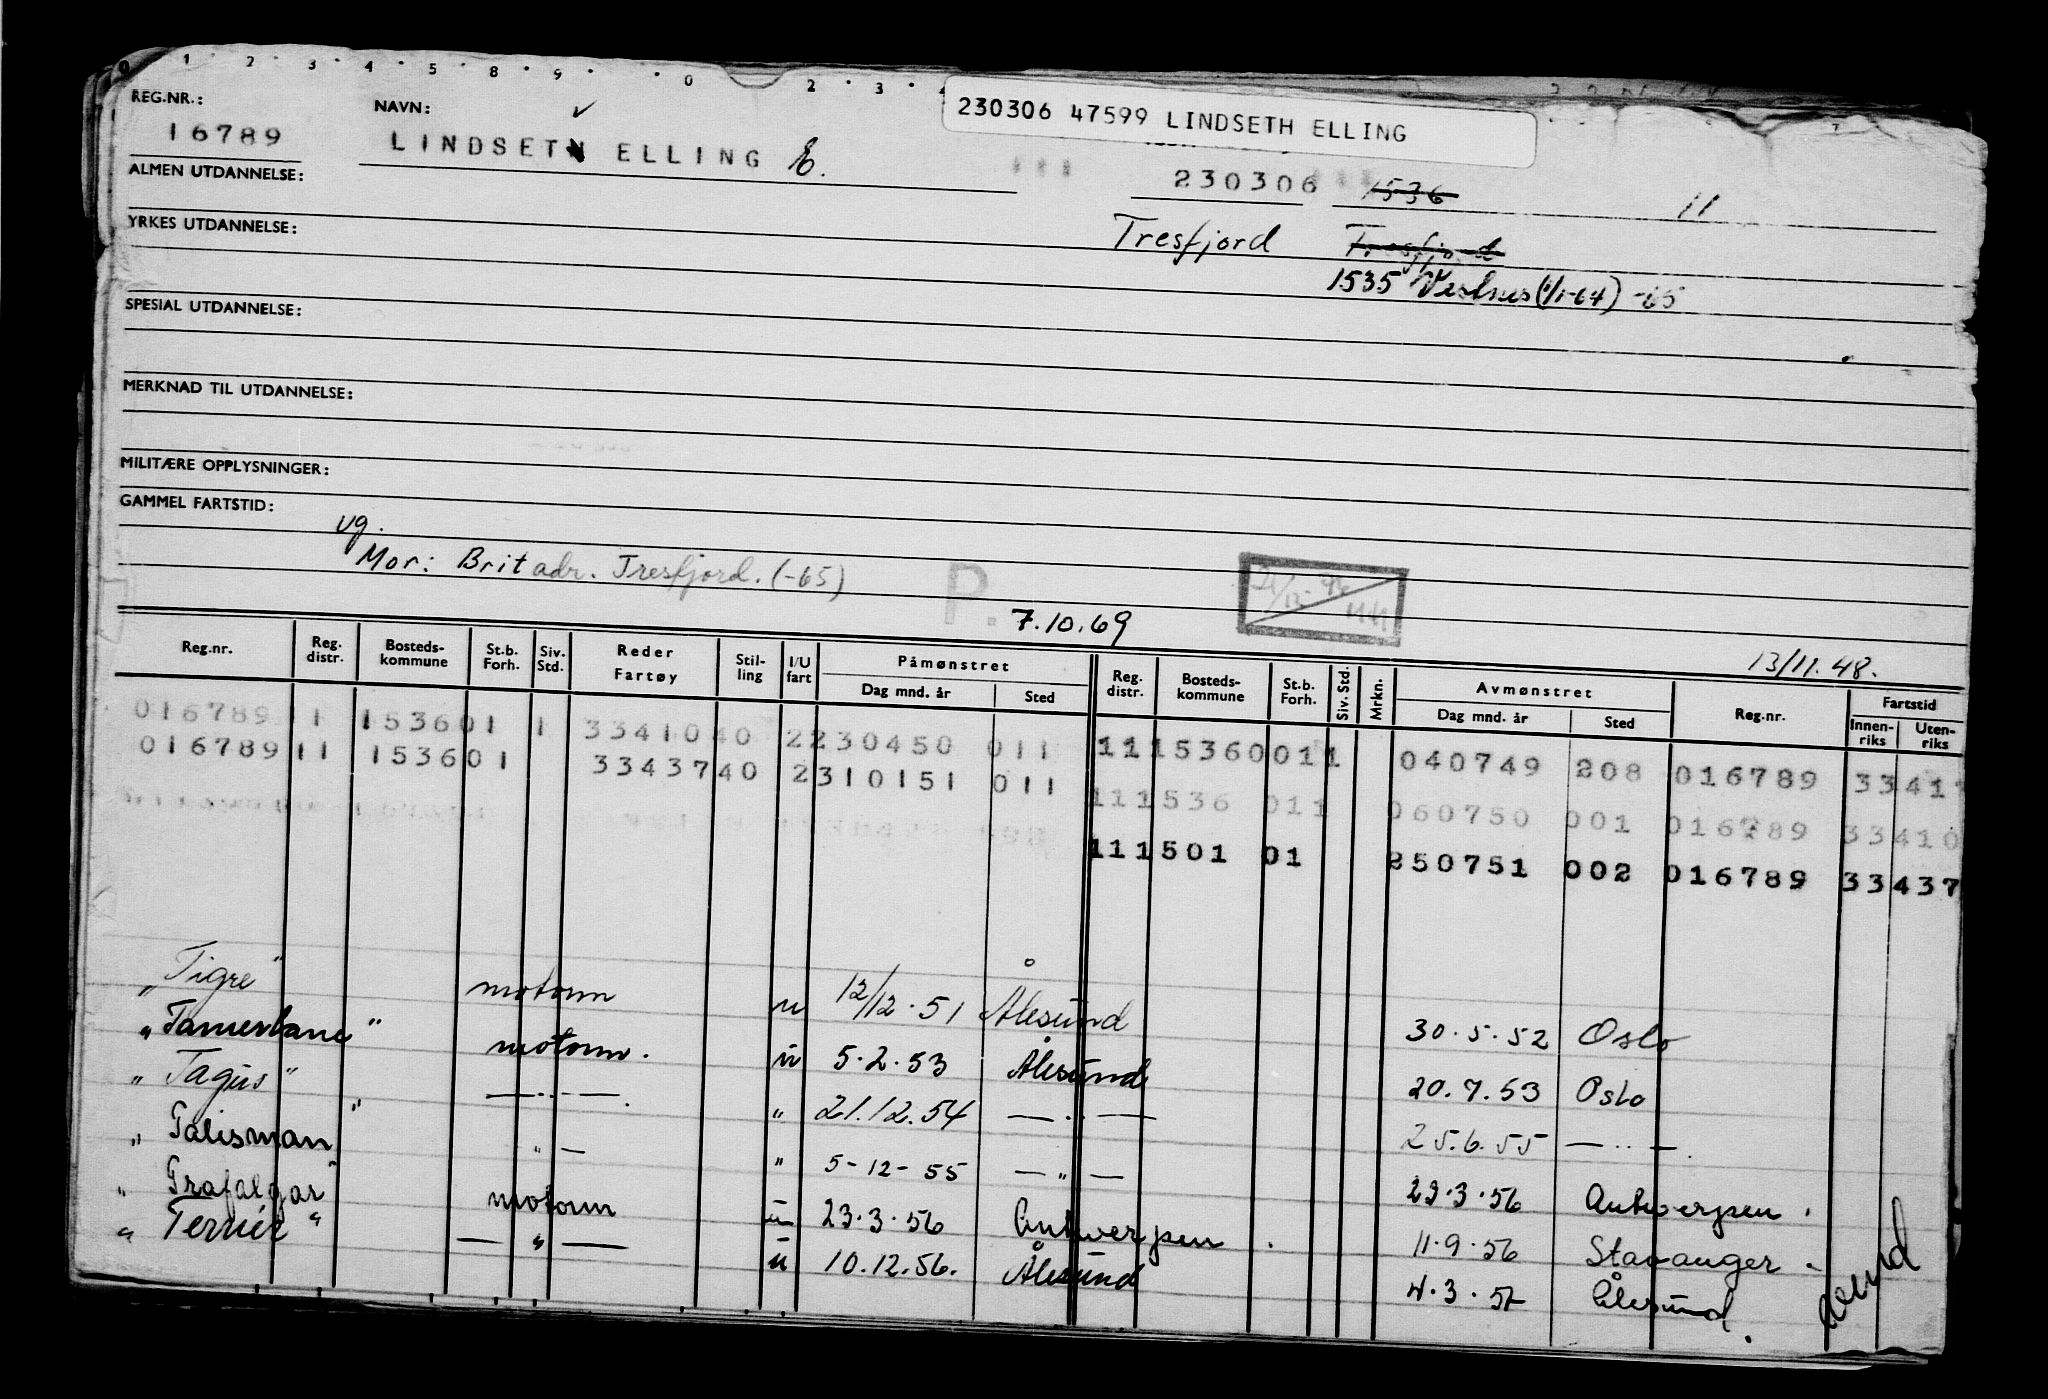 0 1 2 3 4 5 8 9 0 2 3
REG.NR.: NAVN: 230306 47599 LINDSETH ELLING
16789 LINDSETH ELLING E.
ALMEN UTDANNELSE: 230306 1536 11
YRKES UTDANNELSE: Tresfjord Tresfjord
1535 Vestnes (1/1-64) -65
SPESIAL UTDANNELSE:
MERKNAD TIL UTDANNELSE:
MILITÆRE OPPLYSNINGER:
GAMMEL FARTSTID:
ug.
Mor: Brit adr. Tresfjord. (-65) P.
7.10.69
13/11.48.
Reg.nr. Reg. distr. Bosteds-kommune St.b. Forh. Siv. Std. Reder Fartøy Stil-ling I/U fart Påmønstret Dag mnd. år Sted Reg. distr. Bosteds-kommune St.b. Forh. Siv. Std. Mrkn. Avmønstret Dag mnd. år Sted Reg.nr. Fartstid Innen-riks Uten-riks
016789 11 153601 1 3341040 2230450 011 1115360011 040749 208 016789 33411
016789 11 153601 3343740 2310151 011 111536 011 060750 001 016789 33410
111501 01 250751 002 016789 33437
"Tigre" motorm u 12/12.51 Ålesund 30.5.52 Oslo
"Tamerlane" motorm. u 5.2.53 Ålesund 20.7.53 Oslo
"Tagus" —..—. " 21.12.54 —..— 25.6.55 —..—.
"Talisman" "— " 5-12-55 —"— 23.3.56 Antwerpen.
"Trafalgar" motorm u 23.3.56 Antwerpen. 11.9.56 Stavanger.
"Ternér" —"— u 10.12.56. Ålesund 4.3.57 Ålesund.